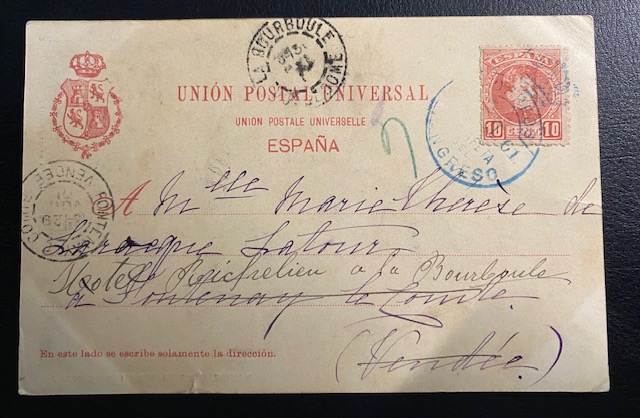 LA BOURBOULE
PUY-DE-DOME
UNIÓN POSTAL UNIVERSAL
UNION POSTALE UNIVERSELLE
ESPAÑA
ESPAÑA
10 10
A Mlle Marie Thérèse de
Larocque Latour
Hotel Richelieu a la Bourboule
a Fontenay le Comte
(Vendée)
En este lado se escribe solamente la dirección.